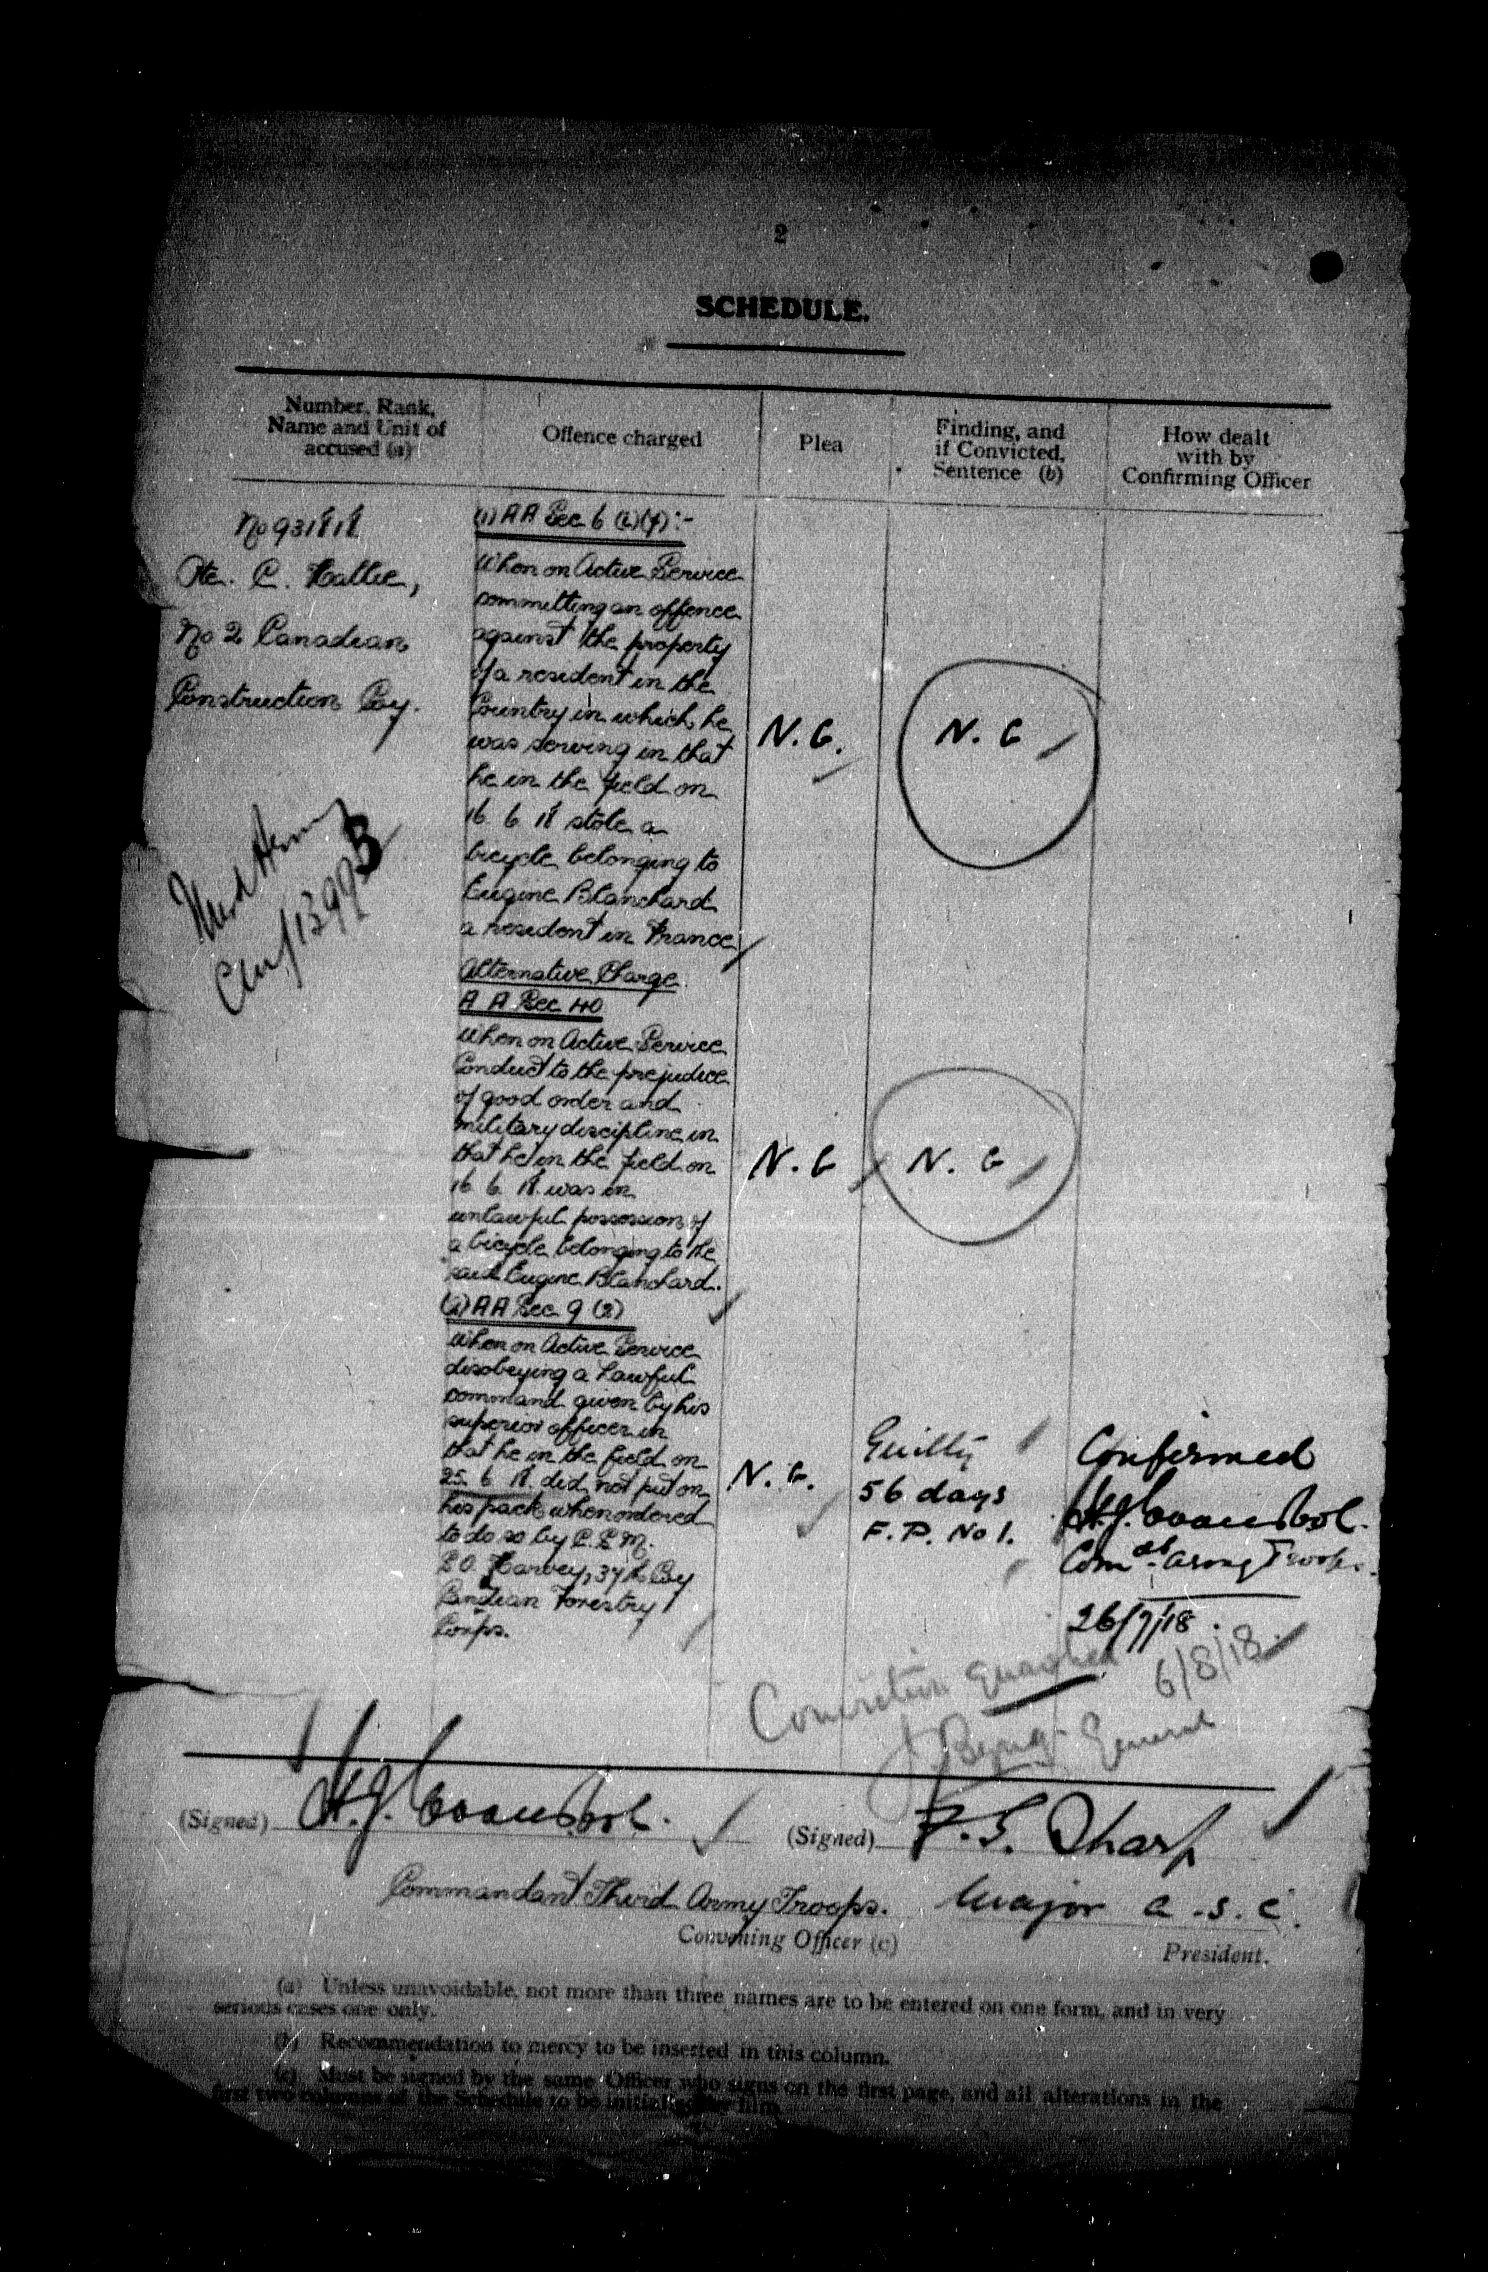 2
SCHEDULE.
Number, Rank,
Name and Unit of
accused (a)
Offence charged
Plea
Finding, and
if Convicted,
Sentence (b)
How dealt
with by
Confirming Officer
Pte. C.
No 2 Canadian
Construction Coy.
(1) A A Sec 6 :-
When on Active Service
committing an offence
against the property
of a resident in the
Country in which he
was serving in that
he in the field on
16 6 18 stole a
bicycle belonging to
Eugine Blanchard
a resident in France
N. G.
N. G
Alternative Charge
A A Sec 40
When on Active Service
Conduct to the prejudice
of good order and
military discipline in
that he in the field on
16 6 18 was in
unlawful possession of
a bicycle belonging to the
said Eugine Blanchard.
N. G
N. G
(2) A A Sec 9 (2)
When on Active Service
disobeying a Lawful
command given by his
superior officer in
that he in the field on
25 6 18 did not put on
his pack when ordered
to do so by C.S.M.
Harvey, 37th Coy
Candian Forestry
Corps.
N. G.
Guilty
56 days
F. P. No 1.
Confirmed
H.J. Evans Col.
Comdt Army Troops.
26/7/18.
Conviction quashed
6/8/18
J. Byng. General
(Signed) H.J. Evans Col.
Commandant Third Army Troops.
Convening Officer (c)
(Signed) F. S. Sharp
Major A. S. C.
President.
(a) Unless unavoidable, not more than three names are to be entered on one form, and in very
serious cases one only.
(b) Recommendation to mercy to be inserted in this column.
(c) Must be signed by the same Officer who signs on the first page, and all alterations in the
first two columns of the Schedule to be initialled by him.